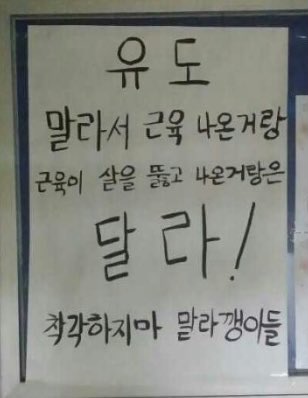 유도
말라서 근육 나온거랑
근육이 살을 뚫고 나온거랑은
달라!
착각하지마 말라깽이들